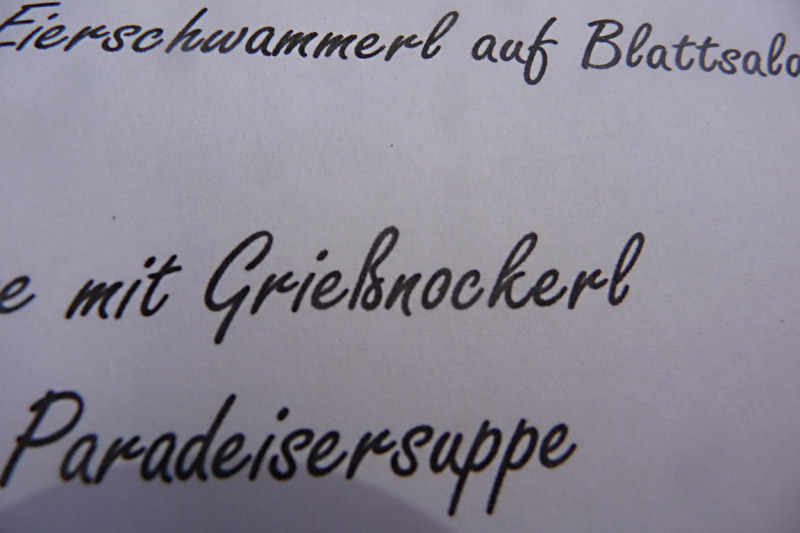 Eierschwammerl auf Blattsala
e mit Grießnockerl
Paradeisersuppe